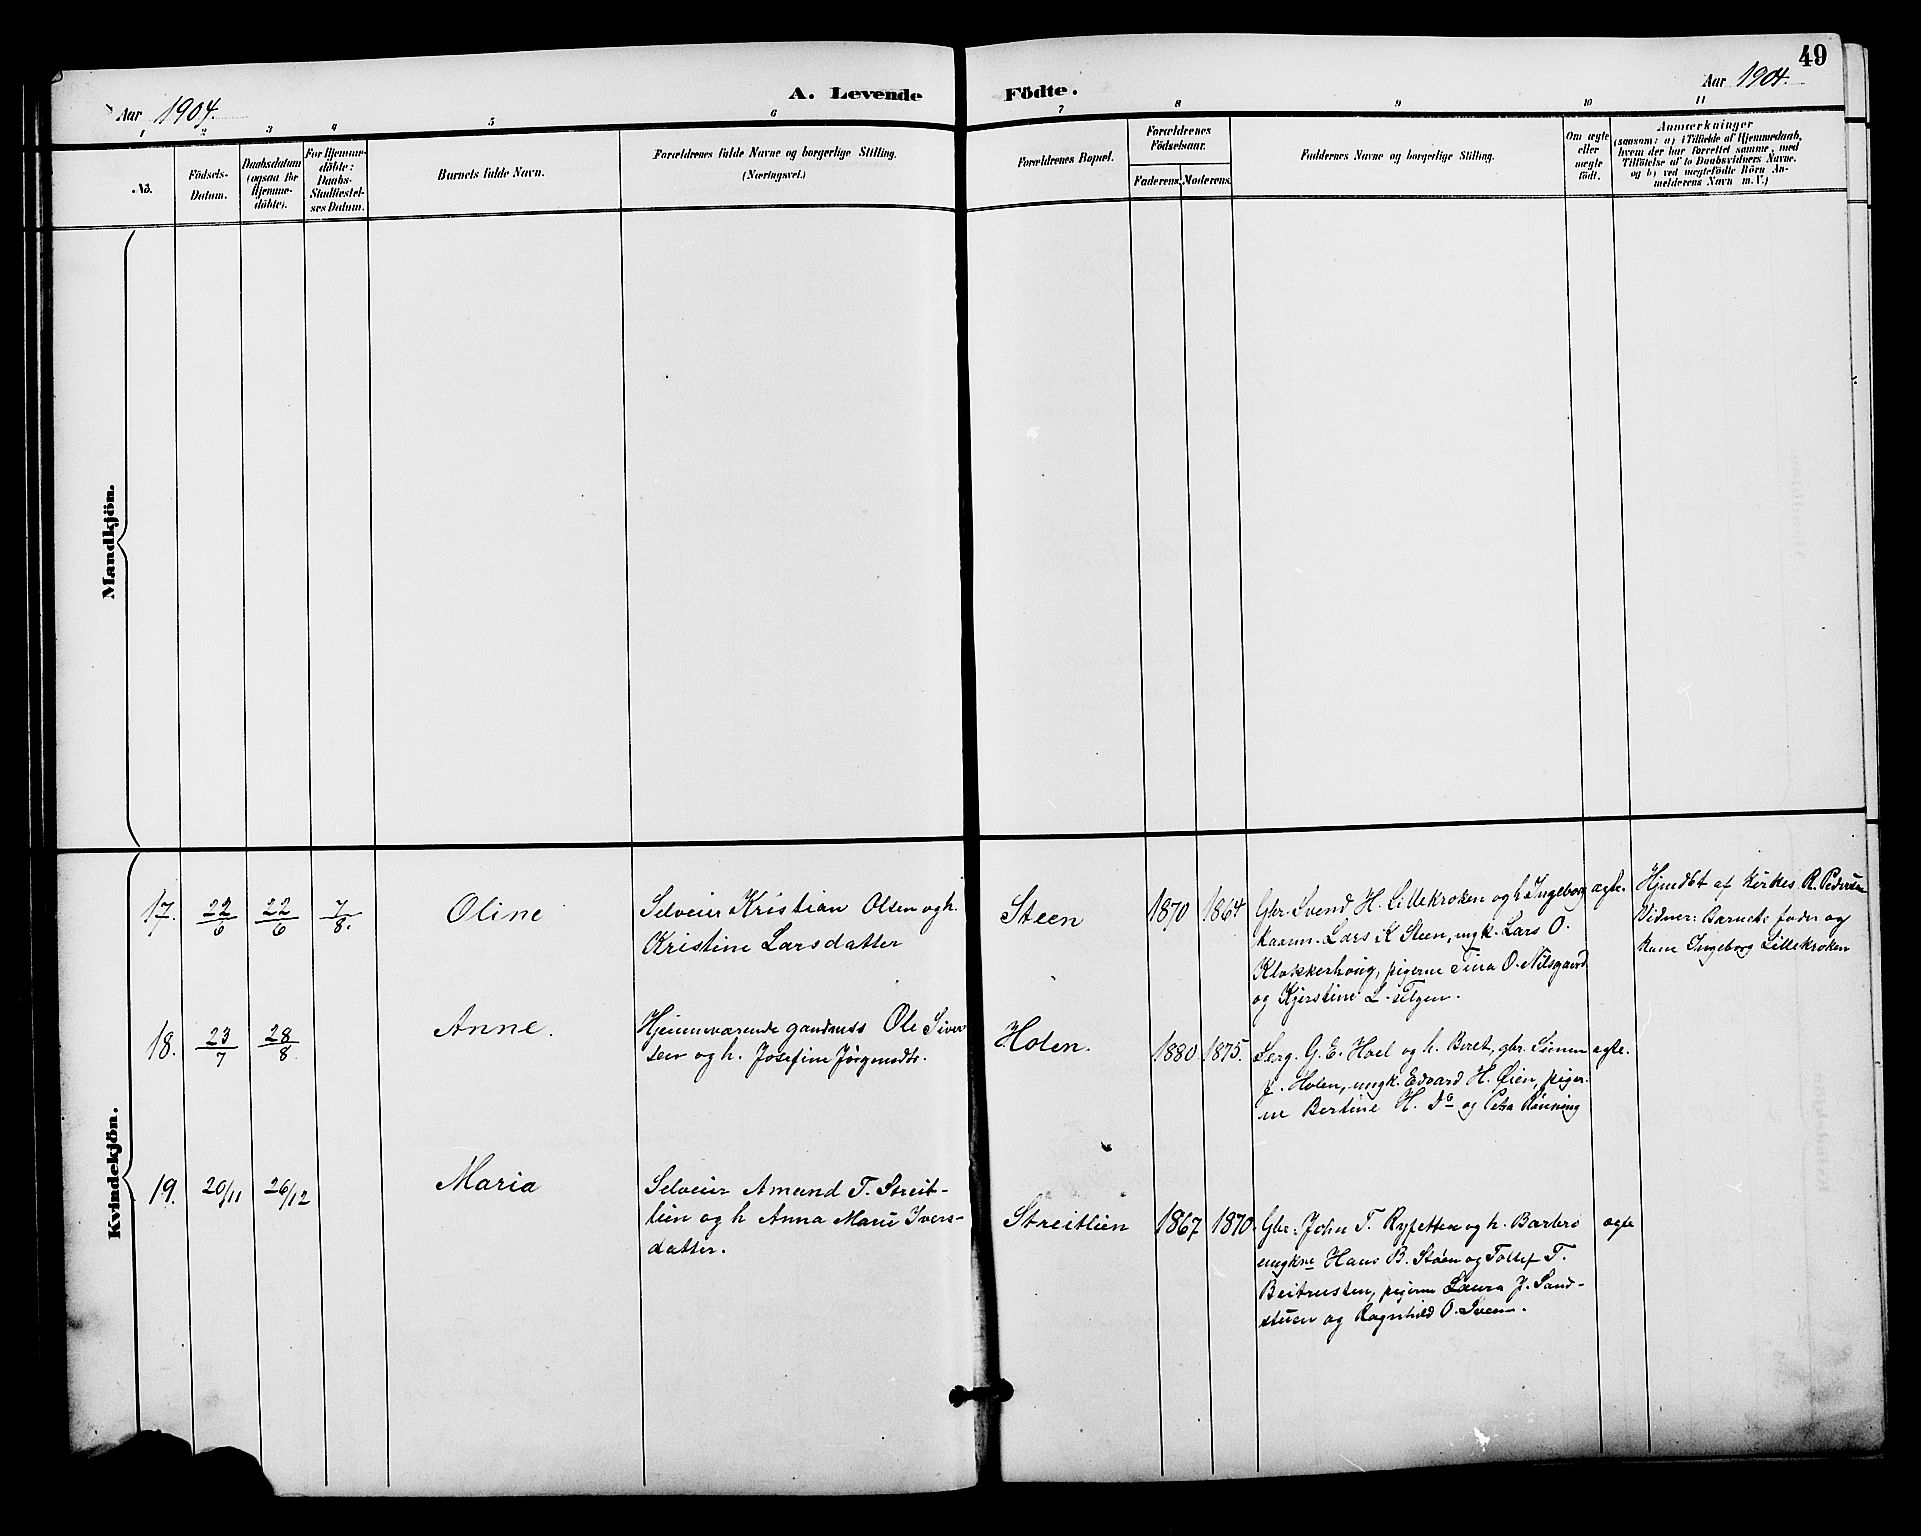 49
Aar 1904.
A. Levende Födte.
Aar 1904.
1 2 3 4 5 6 7 8 9 10 11
No.
Födsels-
Datum.
Daabsdatum
(ogsaa for
Hjemme-
döbte).
For Hjemme-
döbte:
Daabs-
Stadfæstel-
ses Datum.
Barnets fulde Navn.
Forældrenes fulde Navne og borgerlige Stilling.
(Næringsvei.)
Forældrenes Bopæl.
Forældrenes
Födselsaar.
Faderens. Moderens.
Faddernes Navne og borgerlige Stilling.
Om ægte
eller
uægte
födt.
Anmærkninger
(saasom: a) i Tilfælde af Hjemmedaab,
hvem der har forrettet samme, med
Tilföielse af to Daabsvidners Navne.
og b) ved uægtefödte Börn An-
melderens Navn m. V.)
Mandkjön.
Kvindekjön.
17. 22/6 22/6 7/8.
Oline
Selveier Kristian Olsen og h.
Kristine Larsdatter
Steen
1870 1864
Gbr. Svend H. Lillekroken og h Ingeborg
kaarm. Lars K Steen, ungk. Lars O.
Klokkerhoug, pigerne Tina O. Nilsgaard
og Kjerstine L. Telgen.
ægte.
Hjmdbt af Kirkes. R. Pedersen
Vidner: Barnets fader og
kone Ingeborg Lillekroken
18. 23/7 28/8.
Anne.
Hjemmeværende gaardmss Ole Siver
sen og h. Josefine Jørgensdtr.
Holen.
1880 1875.
Serg. G. E. Hoel og h. Beret, gbr. Simen
J. Holen, ungk. Edvard H. Øien, piger-
ne Bertine H. Do og Petra Rønning
ægte.
19. 20/11 26/12
Maria
Selveier Amund T. Streit-
lien og h Anna Marie Ivers-
datter.
Streitlien
1867 1870.
Gbr. John T. Rypetten og h. Barbro
ungkne Hans B. Støen og Tollef T.
Beitrusten, pigerne Laura J. Sand-
stuen og Ragnhild O. Sveen.
ægte